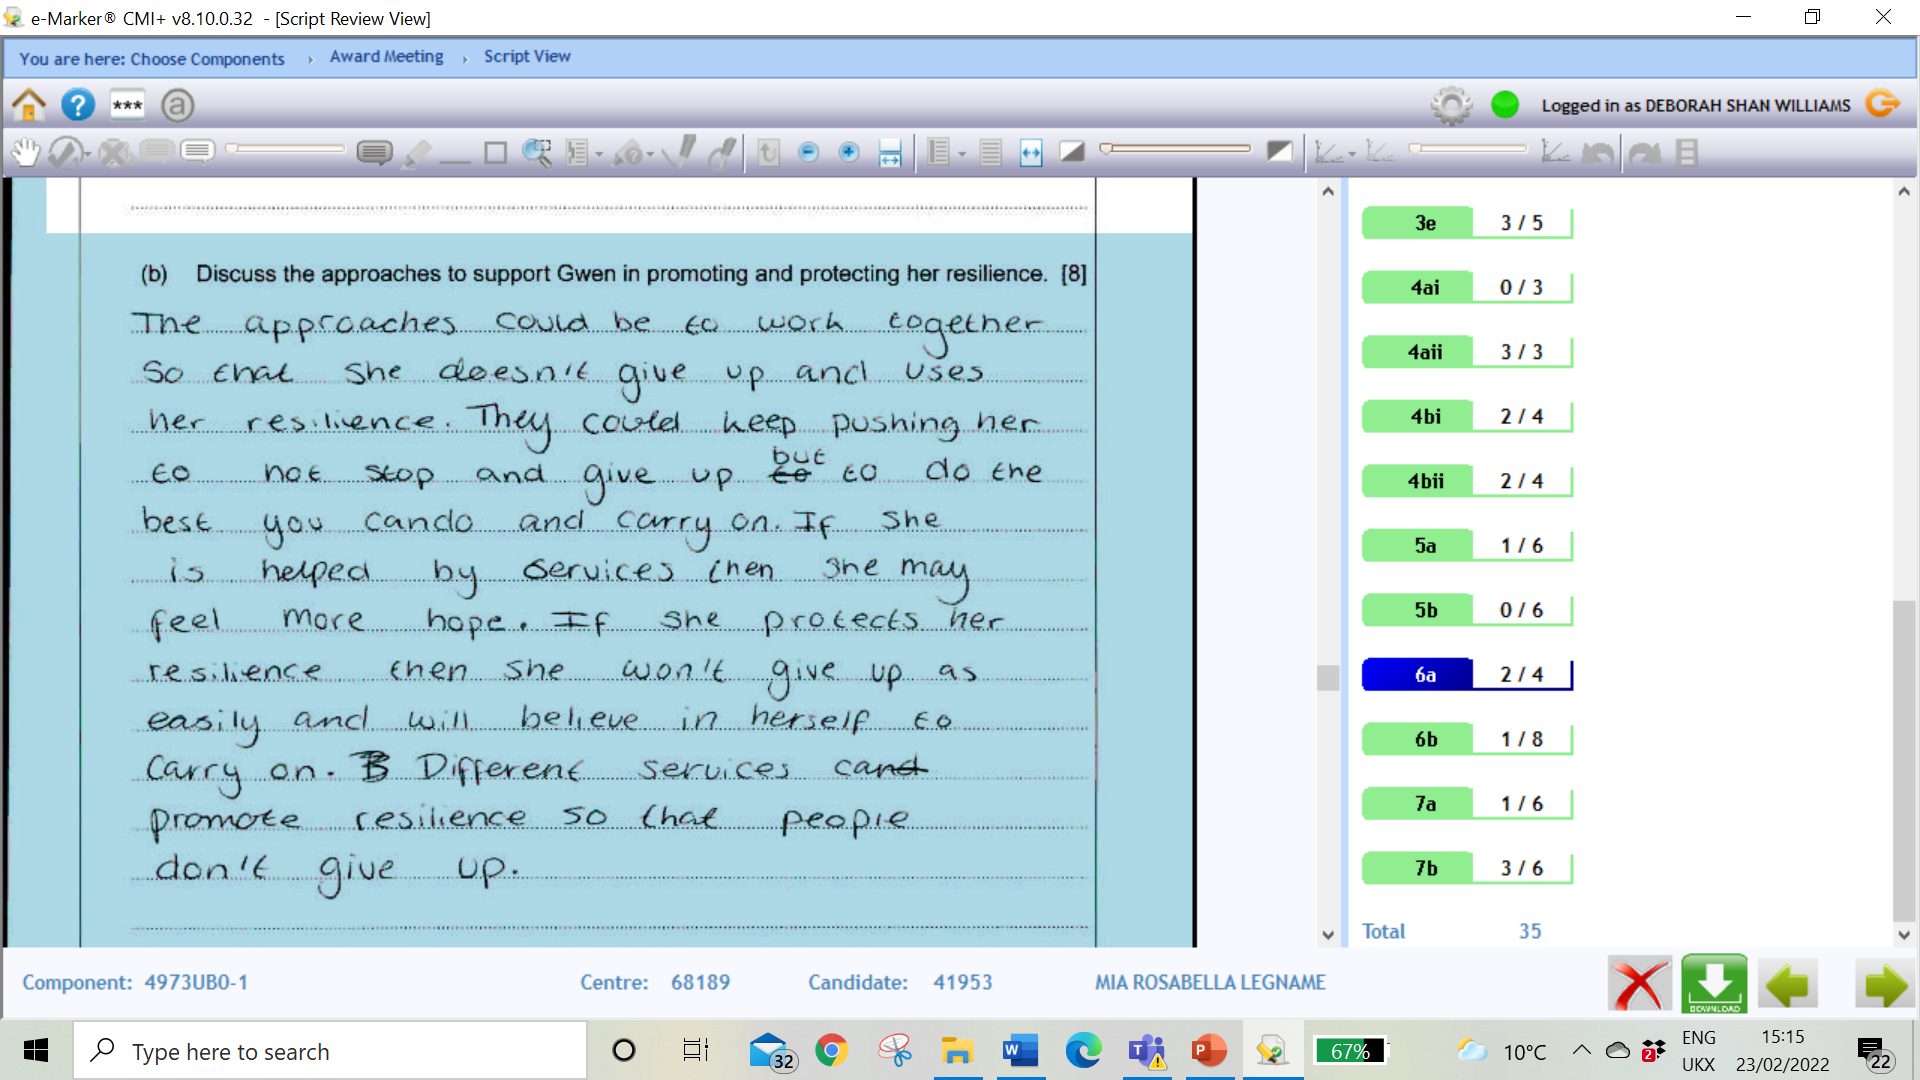 e-Marker® CMI+ v8.10.0.32 - [Script Review View]
You are here: Choose Components › Award Meeting › Script View
*** a Logged in as DEBORAH SHAN WILLIAMS
(b) Discuss the approaches to support Gwen in promoting and protecting her resilience. [8]
The approaches could be to work together
so that she doesn't give up and uses
her resilience. They could keep pushing her
to not stop and give up to but to do the
best you can do and carry on. If she
is helped by services then she may
feel more hope. If she protects her
resilience then she won't give up as
easily and will believe in herself to
carry on. B Different services cand
promote resilience so that people
don't give up.
3e 3 / 5
4ai 0 / 3
4aii 3 / 3
4bi 2 / 4
4bii 2 / 4
5a 1 / 6
5b 0 / 6
6a 2 / 4
6b 1 / 8
7a 1 / 6
7b 3 / 6
Total 35
Component: 4973UB0-1 Centre: 68189 Candidate: 41953 MIA ROSABELLA LEGNAME
DOWNLOAD
Type here to search
32
67%
10°C
2
ENG
UKX
15:15
23/02/2022
22